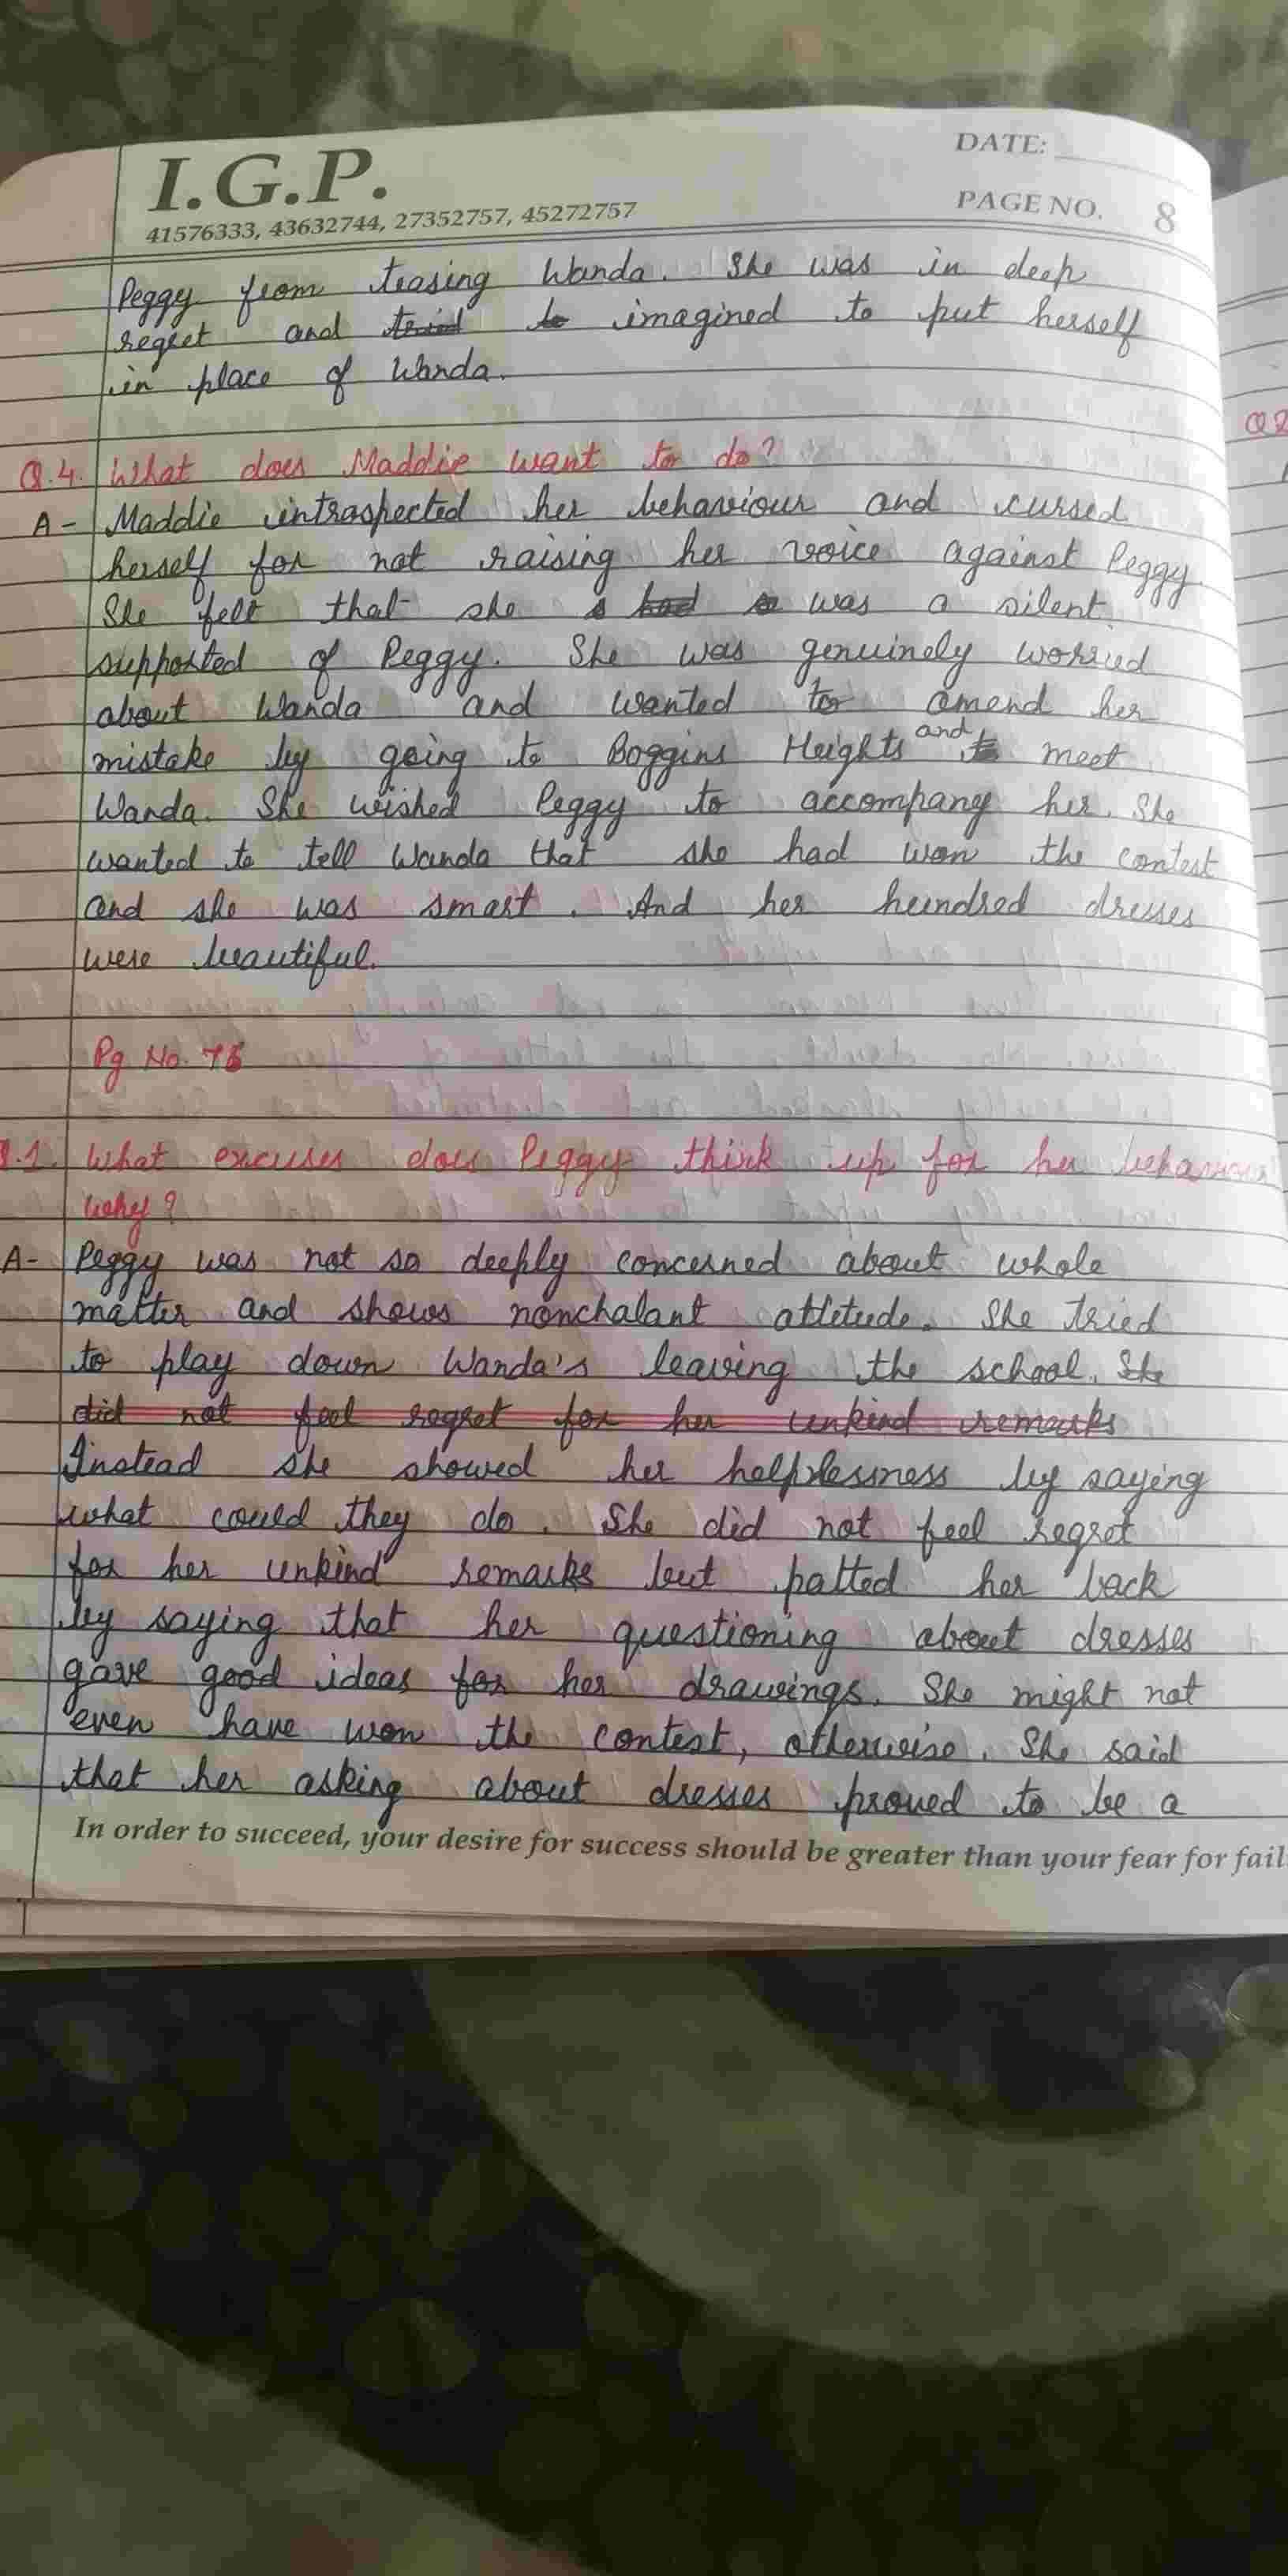 I.G.P.
41576333, 43632744, 27352757, 45272757
DATE:
PAGE NO. 8
Peggy from teasing Wanda. She was in deep
regret and tried to imagined to put herself
in place of Wanda.
Q.4. What does Maddie want to do?
A- Maddie intraspected her behaviour and cursed
herself for not raising her voice against Peggy.
She felt that she s had so was a silent
supported of Peggy. She was genuinely worried
about Wanda and wanted to amend her
mistake by going to Boggins Heights and meet
Wanda. She wished Peggy to accompany her. She
wanted to tell Wanda that she had won the contest
and she was smart. And her hundred dresses
were beautiful.
Pg No. 75
Q.1. What excuses does Peggy think up for her behaviour
why?
A- Peggy was not so deeply concerned about whole
matter and shows nonchalant attetude. She tried
to play down Wanda's leaving the school. She
did not feel regret for her unkind remarks
Instead she showed her helplessness by saying
what could they do. She did not feel regret
for her unkind remarks but patted her back
by saying that her questioning about dresses
gave good ideas for her drawings. She might not
even have won the contest, otherwise. She said
that her asking about dresses proved to be a
In order to succeed, your desire for success should be greater than your fear for fail
Q2